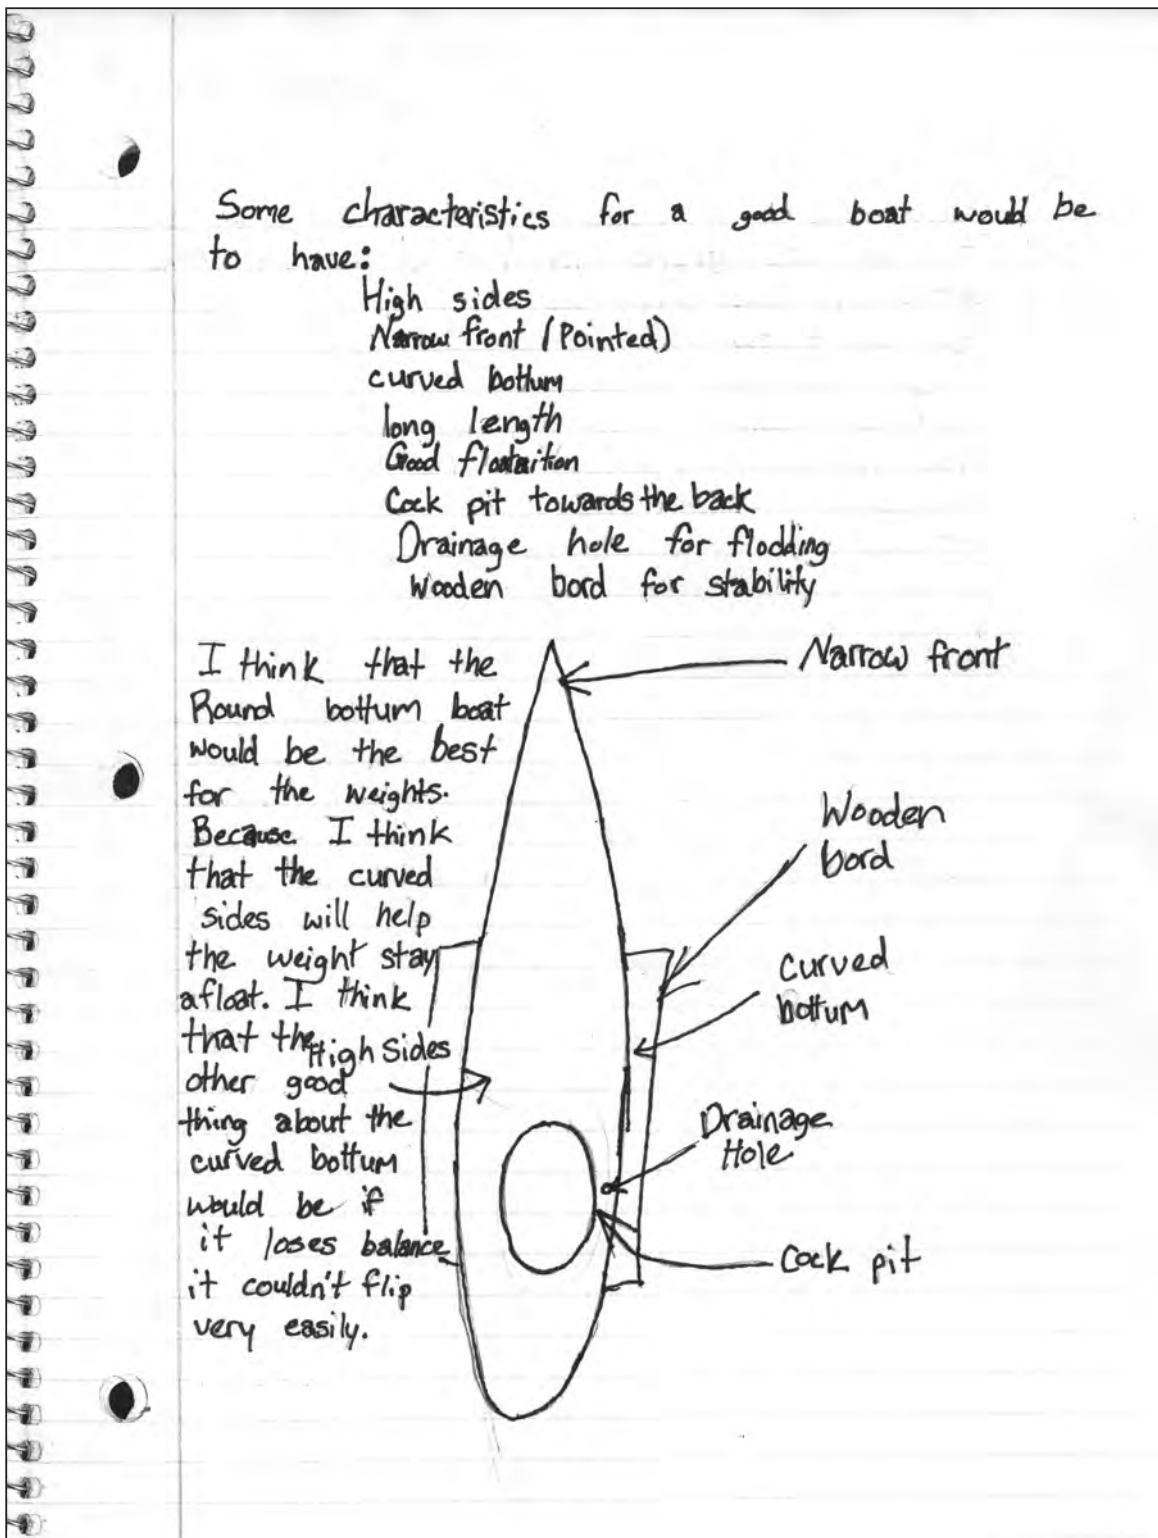 Some characteristics for a good boat would be
to have:
High sides
Narrow front (Pointed)
curved bottum
long length
Good floataition
Cock pit towards the back
Drainage hole for flodding
Wooden bord for stability
I think that the
Round bottum boat
would be the best
for the weights.
Because I think
that the curved
sides will help
the weight stay
afloat. I think
that the
other good
thing about the
curved bottum
would be if
it loses balance
it couldn't flip
very easily.
Narrow front
Wooden
bord
Curved
bottum
High Sides
Drainage
Hole
Cock pit